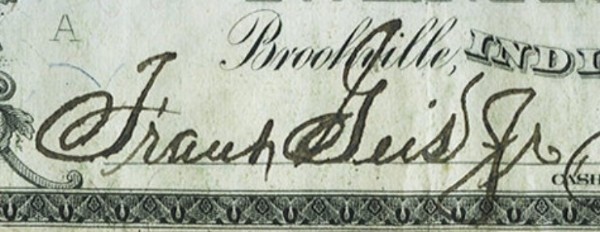 A
Brookville, INDI
Frank Geis Jr
CASH